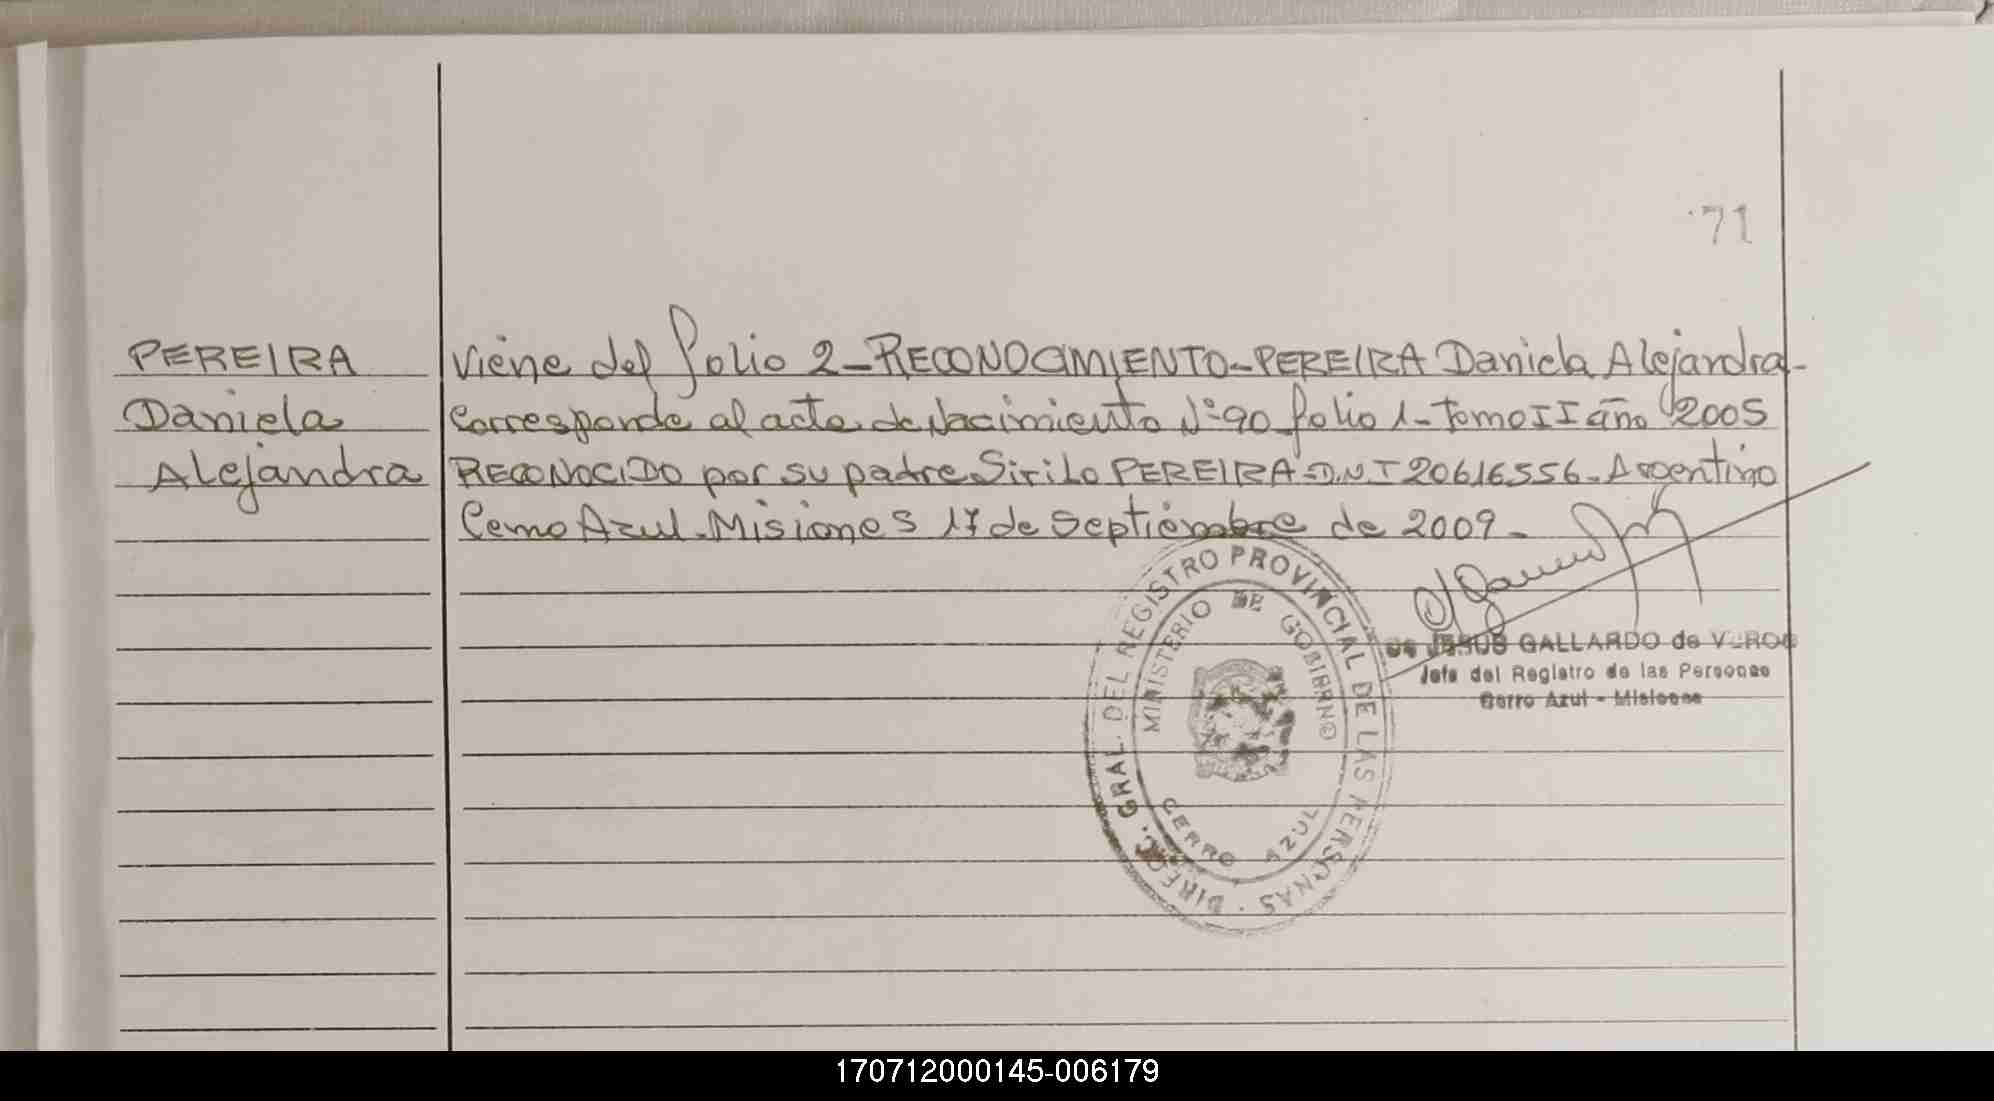 71
PEREIRA
Daniela
Alejandra
Viene del folio 2-RECONOCIMIENTO-PEREIRA Daniela Alejandra-
Corresponde al acta de Nacimiento N°90 folio 1-Tomo II año 2005
RECONOCIDO por su padre Sirilo PEREIRA-D.N.I 20616556-Argentino
Cerro Azul-Misiones 17 de Septiembre de 2009-
JESUS GALLARDO de
Jefe del Registro de las Personas
Cerro Azul - Misiones
DIREC. GRAL. DEL REGISTRO PROVINCIAL DE LAS PERSONAS
MINISTERIO DE GOBIERNO
CERRO AZUL
170712000145-006179